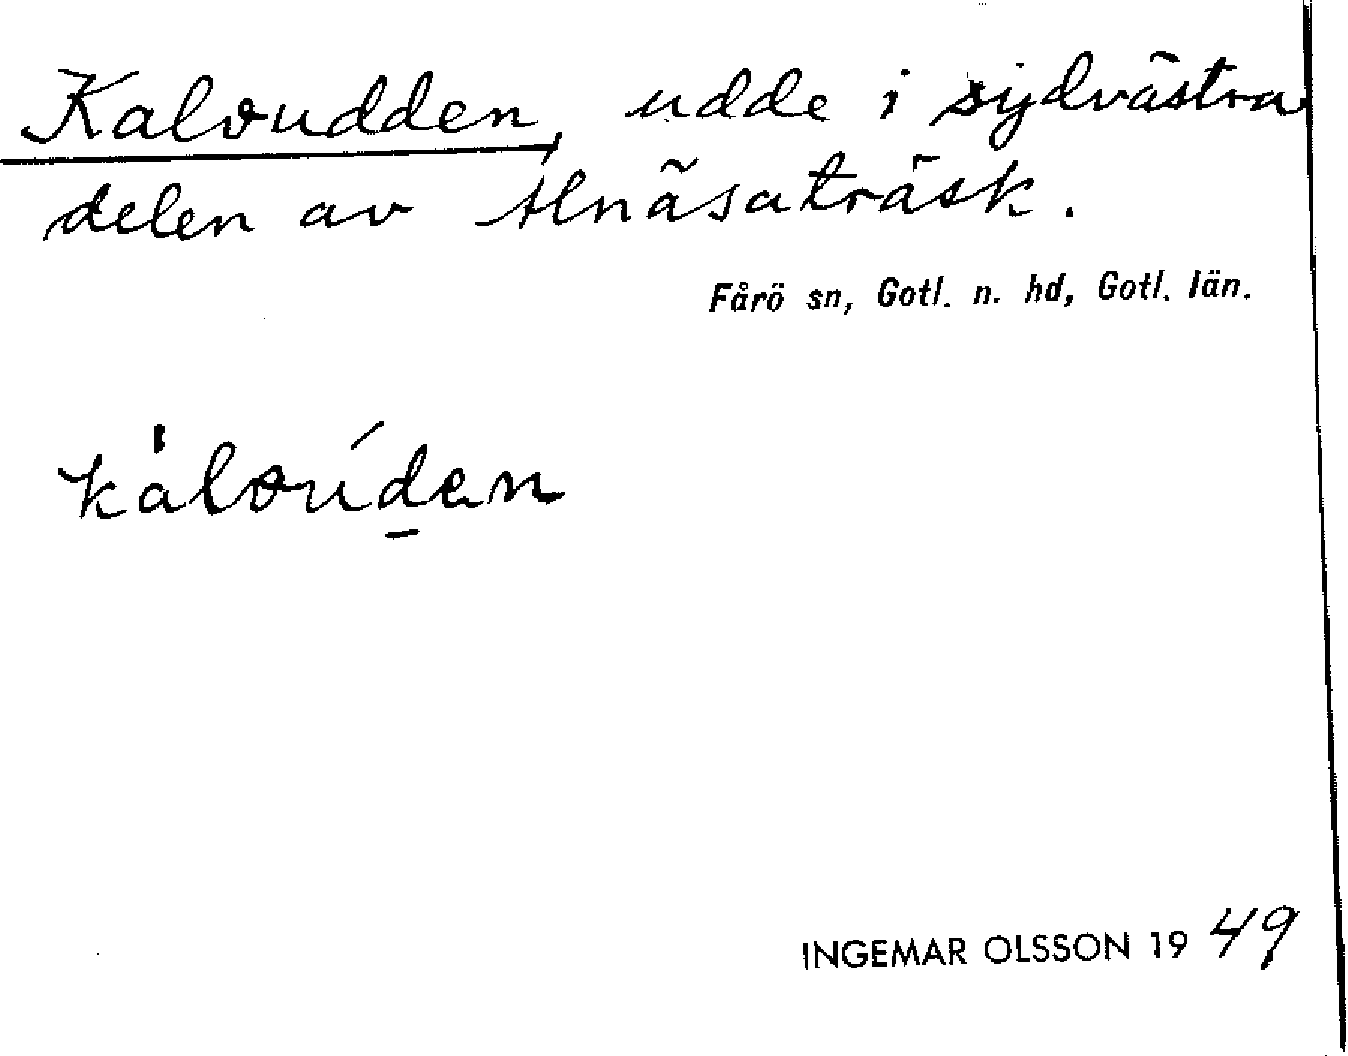 Kalvudden, udde i sydvästra
delen av Alnäsaträsk.
Fårö sn, Gotl. n. hd, Gotl. län.
INGEMAR OLSSON 1949